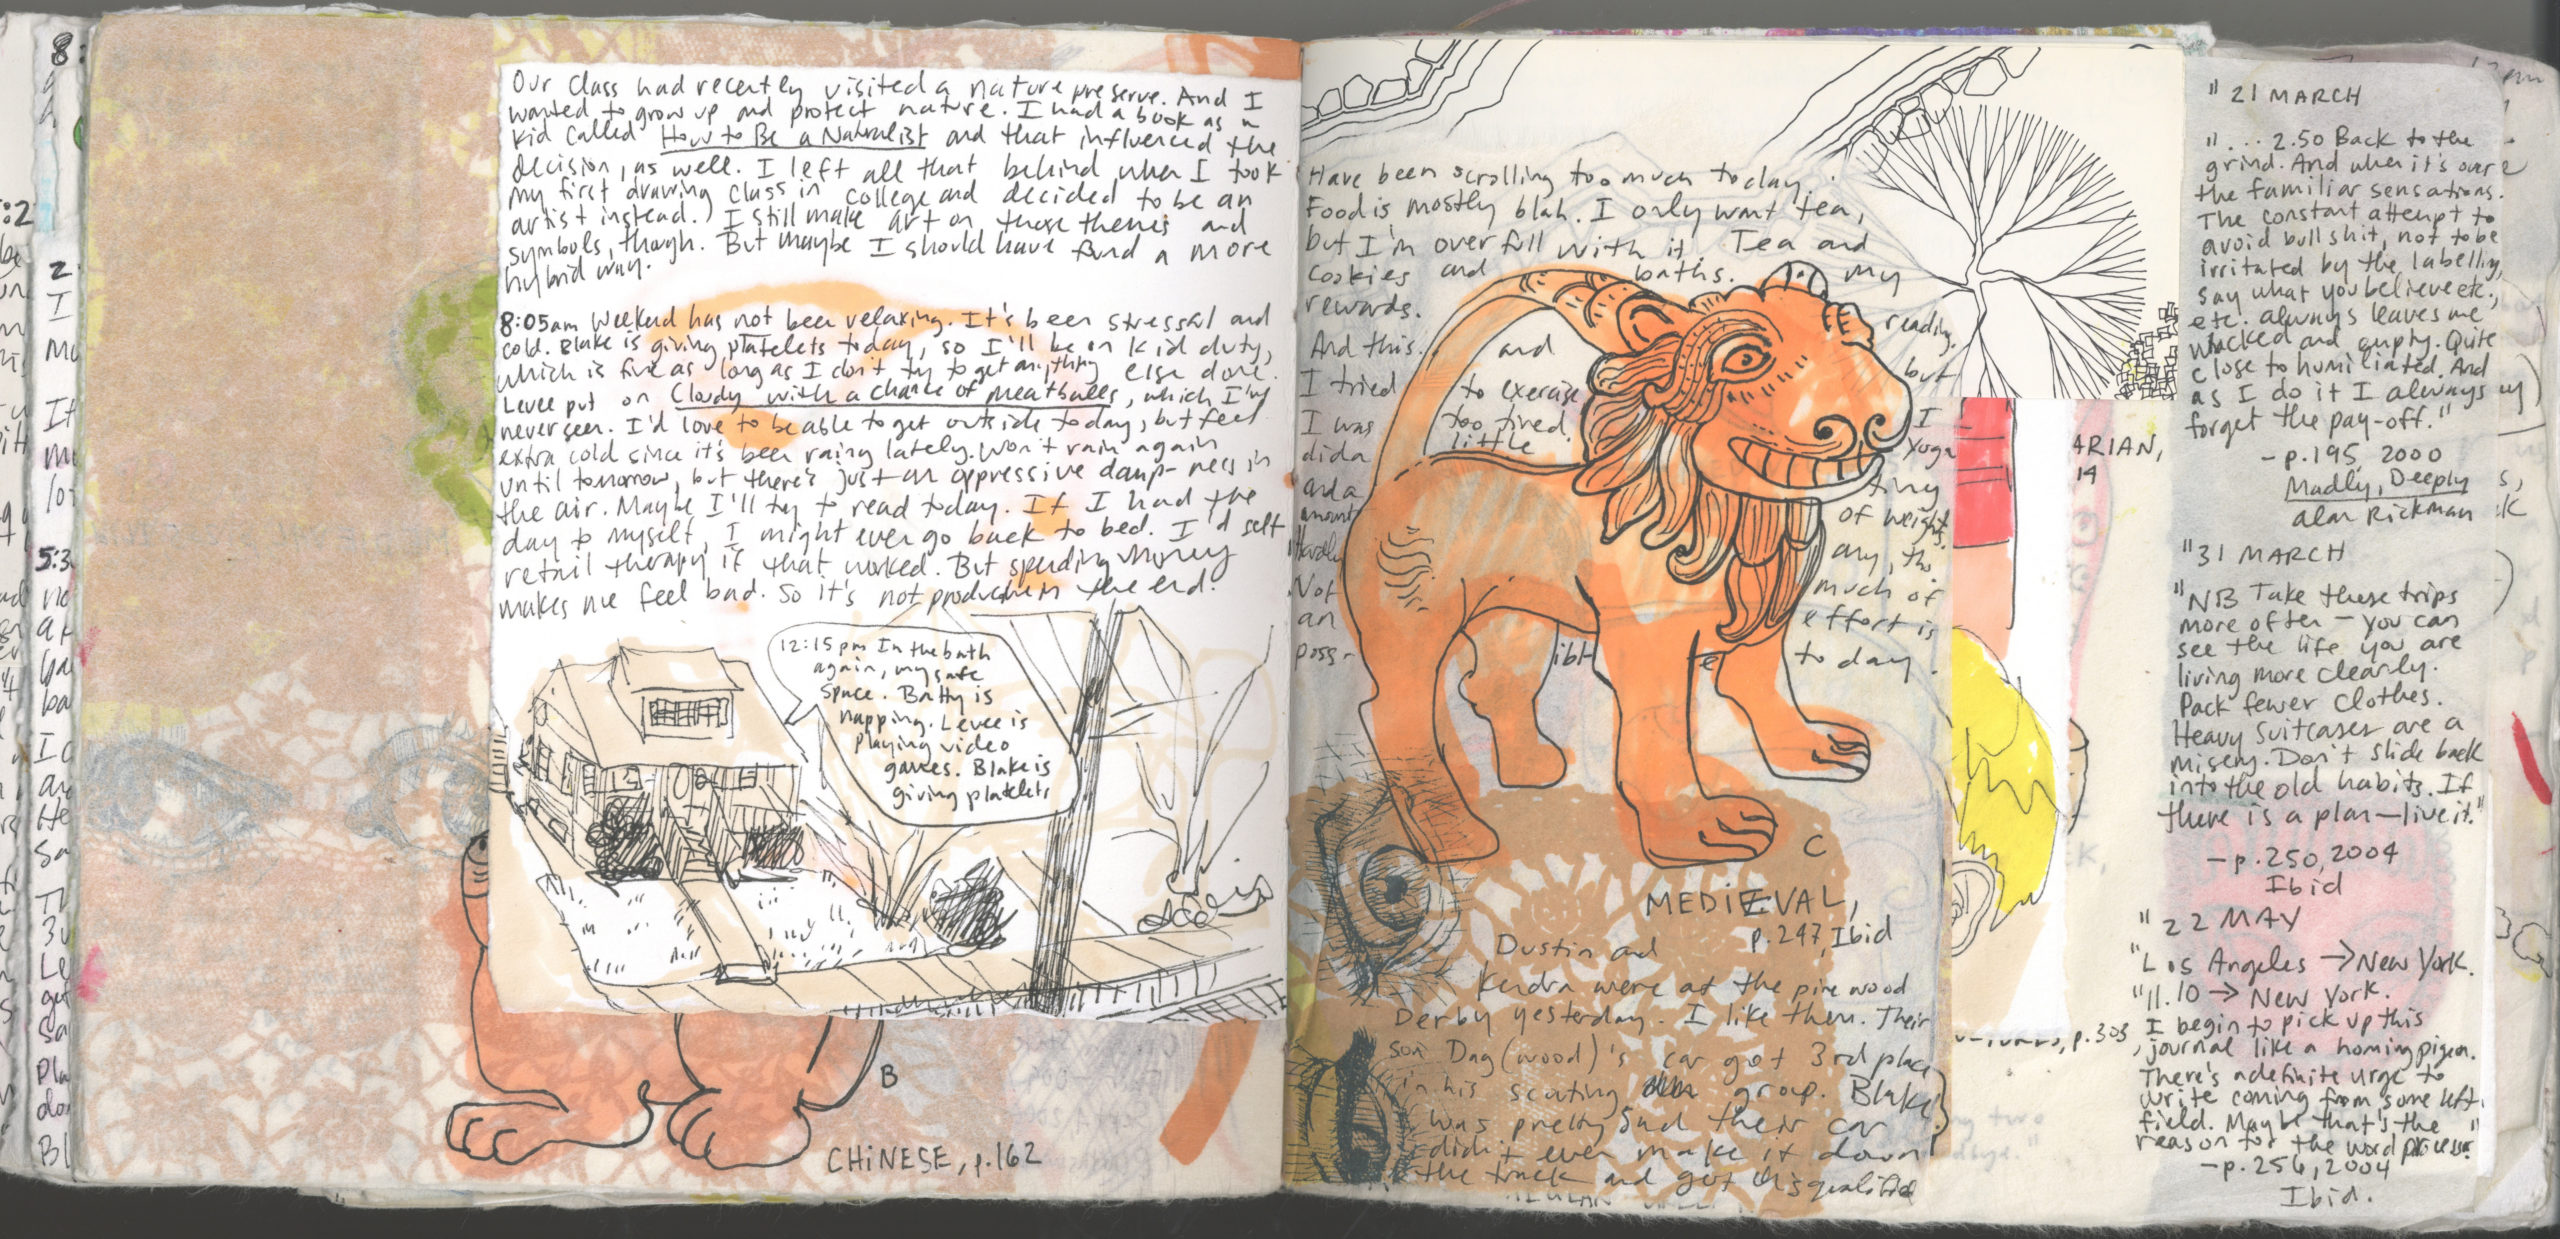 Our class had recently visited a nature preserve. And I
wanted to grow up and protect nature. I had a book as a
kid called How to Be a Naturalist and that influenced the
decision, as well. I left all that behind when I took
my first drawing class in college and decided to be an
artist instead.) I still make art on these themes and
symbols, though. But maybe I should have found a more
hybrid way.
8:05am Weekend has not been relaxing. It's been stressful and
cold. Blake is giving platelets today, so I'll be on kid duty,
which is fine as long as I don't try to get anything else done.
Levee put on Cloudy with a chance of meatballs, which I'm
never seen. I'd love to be able to get outside today, but feel
extra cold since it's been rainy lately. Won't rain again
until tomorrow, but there's just an oppressive damp-ness in
the air. Maybe I'll try to read today. If I had the
day to myself, I might even go back to bed. I'd self
retail therapy if that worked. But spending money
makes me feel bad. So it's not productive in the end.
12:15pm In the bath
again, my safe
space. Batty is
napping. Levee is
playing video
games. Blake is
giving platelets
B
CHINESE, p.162
Have been scrolling too much today.
Food is mostly blah. I only want tea,
but I'm over full with it. Tea and
cookies and baths. My
rewards. reading.
And this. and but
I tried to exercise I
I was too tired. Yoga
did a little
and a tiny
amount of weight.
Hardly any, tho
Not much of
an effort is
poss- ibl e today.
C
MEDIEVAL,
p.247, Ibid
Dustin and
Kendra were at the pine wood
Derby yesterday. I like them. Their
son Dag (wood)'s car got 3rd place
in his scouting group. Blake
was pretty sad their car
didn't even make it down
the track and got disqualified
ARIAN,
14
p.303
"21 MARCH
"... 2.50 Back to the
grind. And when it's over
the familiar sensations.
The constant attempt to
avoid bullshit, not to be
irritated by the labelling,
say what you believe etc.,
etc. always leaves me
whacked and empty. Quite
close to humiliated. And
as I do it I always
forget the pay-off."
-p.195 2000
Madly, Deeply
Alan Rickman
"31 MARCH
"NB Take these trips
more often — you can
see the life you are
living more clearly.
Pack fewer clothes.
Heavy suitcases are a
misery. Don't slide back
into the old habits. If
there is a plan—live it."
-p.250, 2004
Ibid
"22 MAY
"Los Angeles → New York.
"11.10 → New York.
I begin to pick up this
journal like a homing pigeon.
There's a definite urge to
write coming from some left
field. Maybe that's the
reason for the word processor."
-p.256, 2004
Ibid.